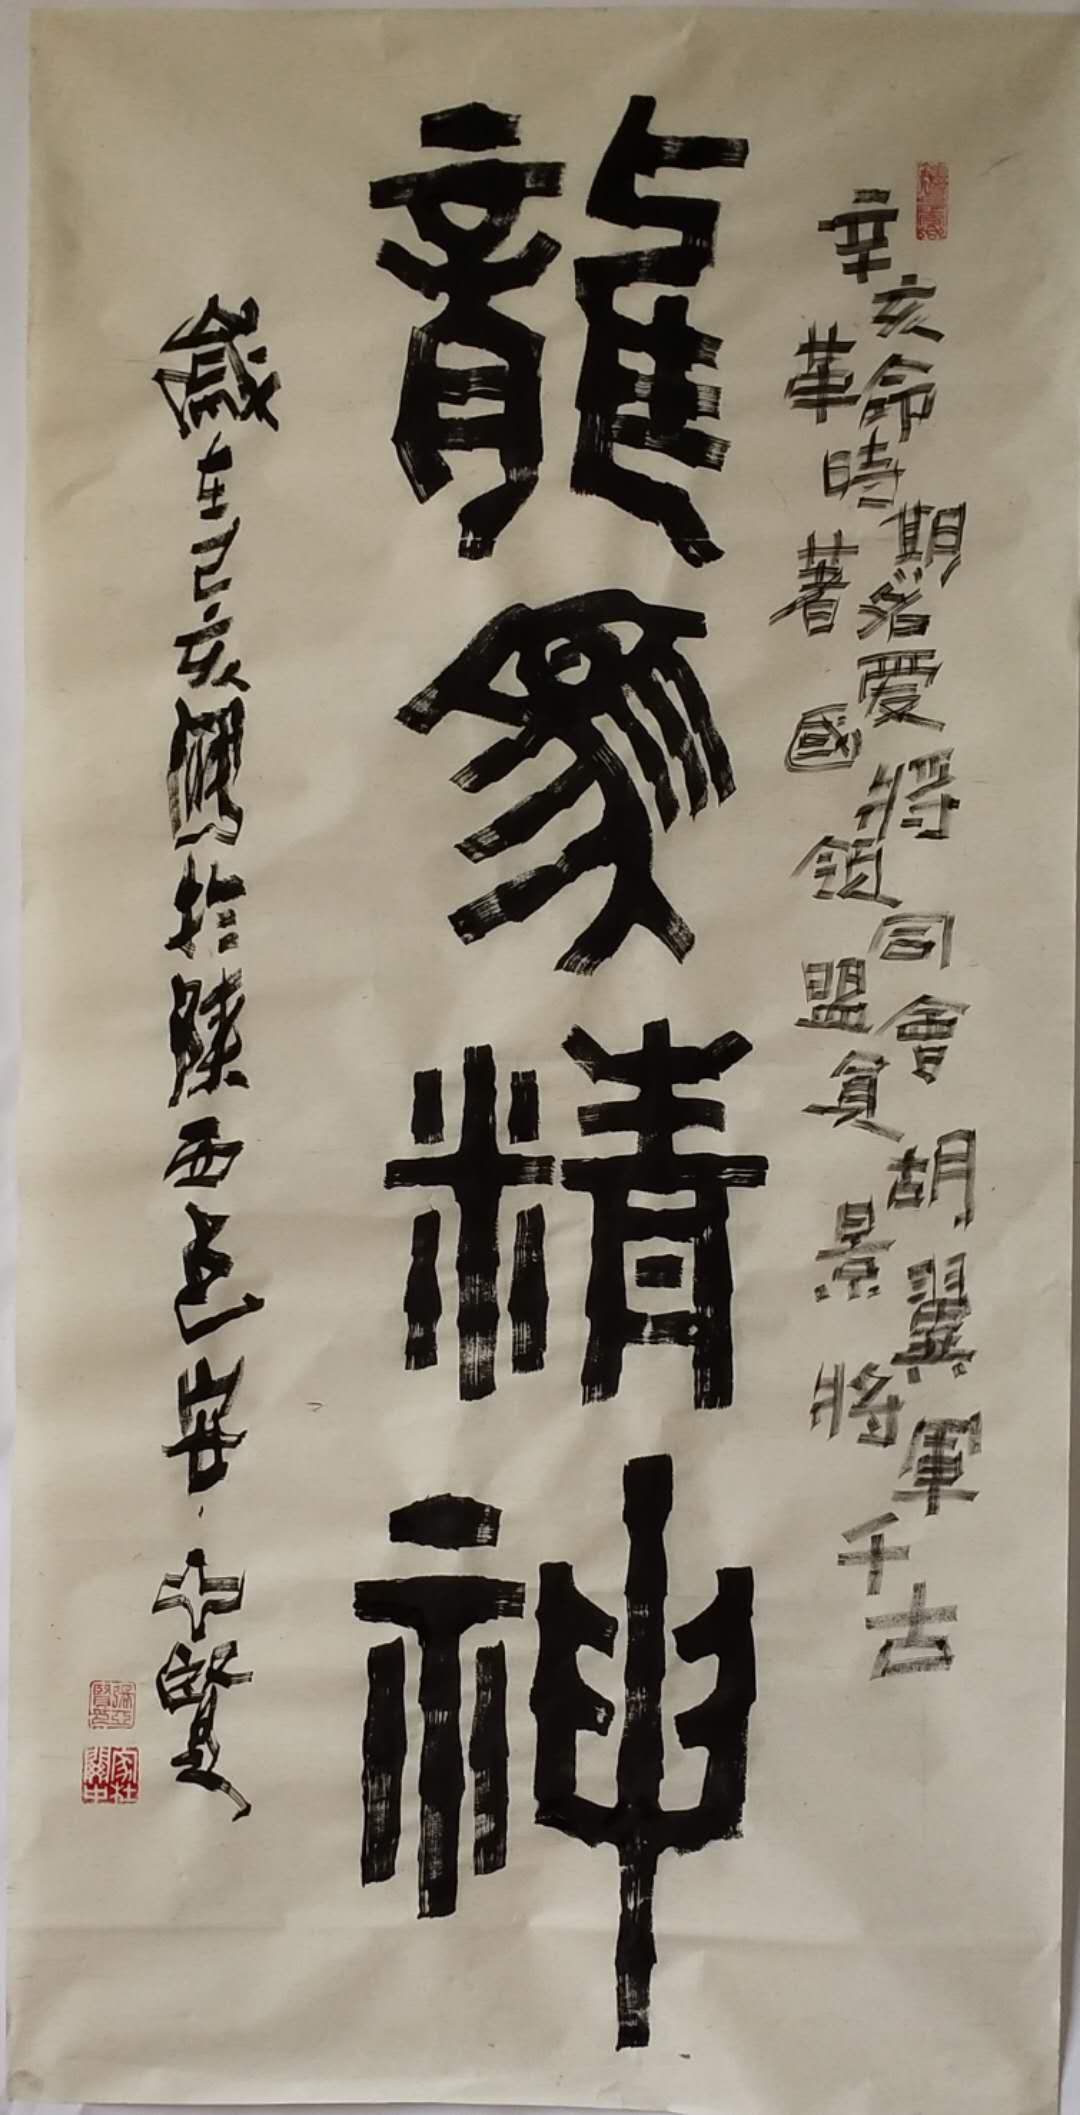 辛亥革命時期著名愛國將領同盟會員胡景翼將軍千古
龍象精神
歲在己亥於陝西亞賢
家在關中